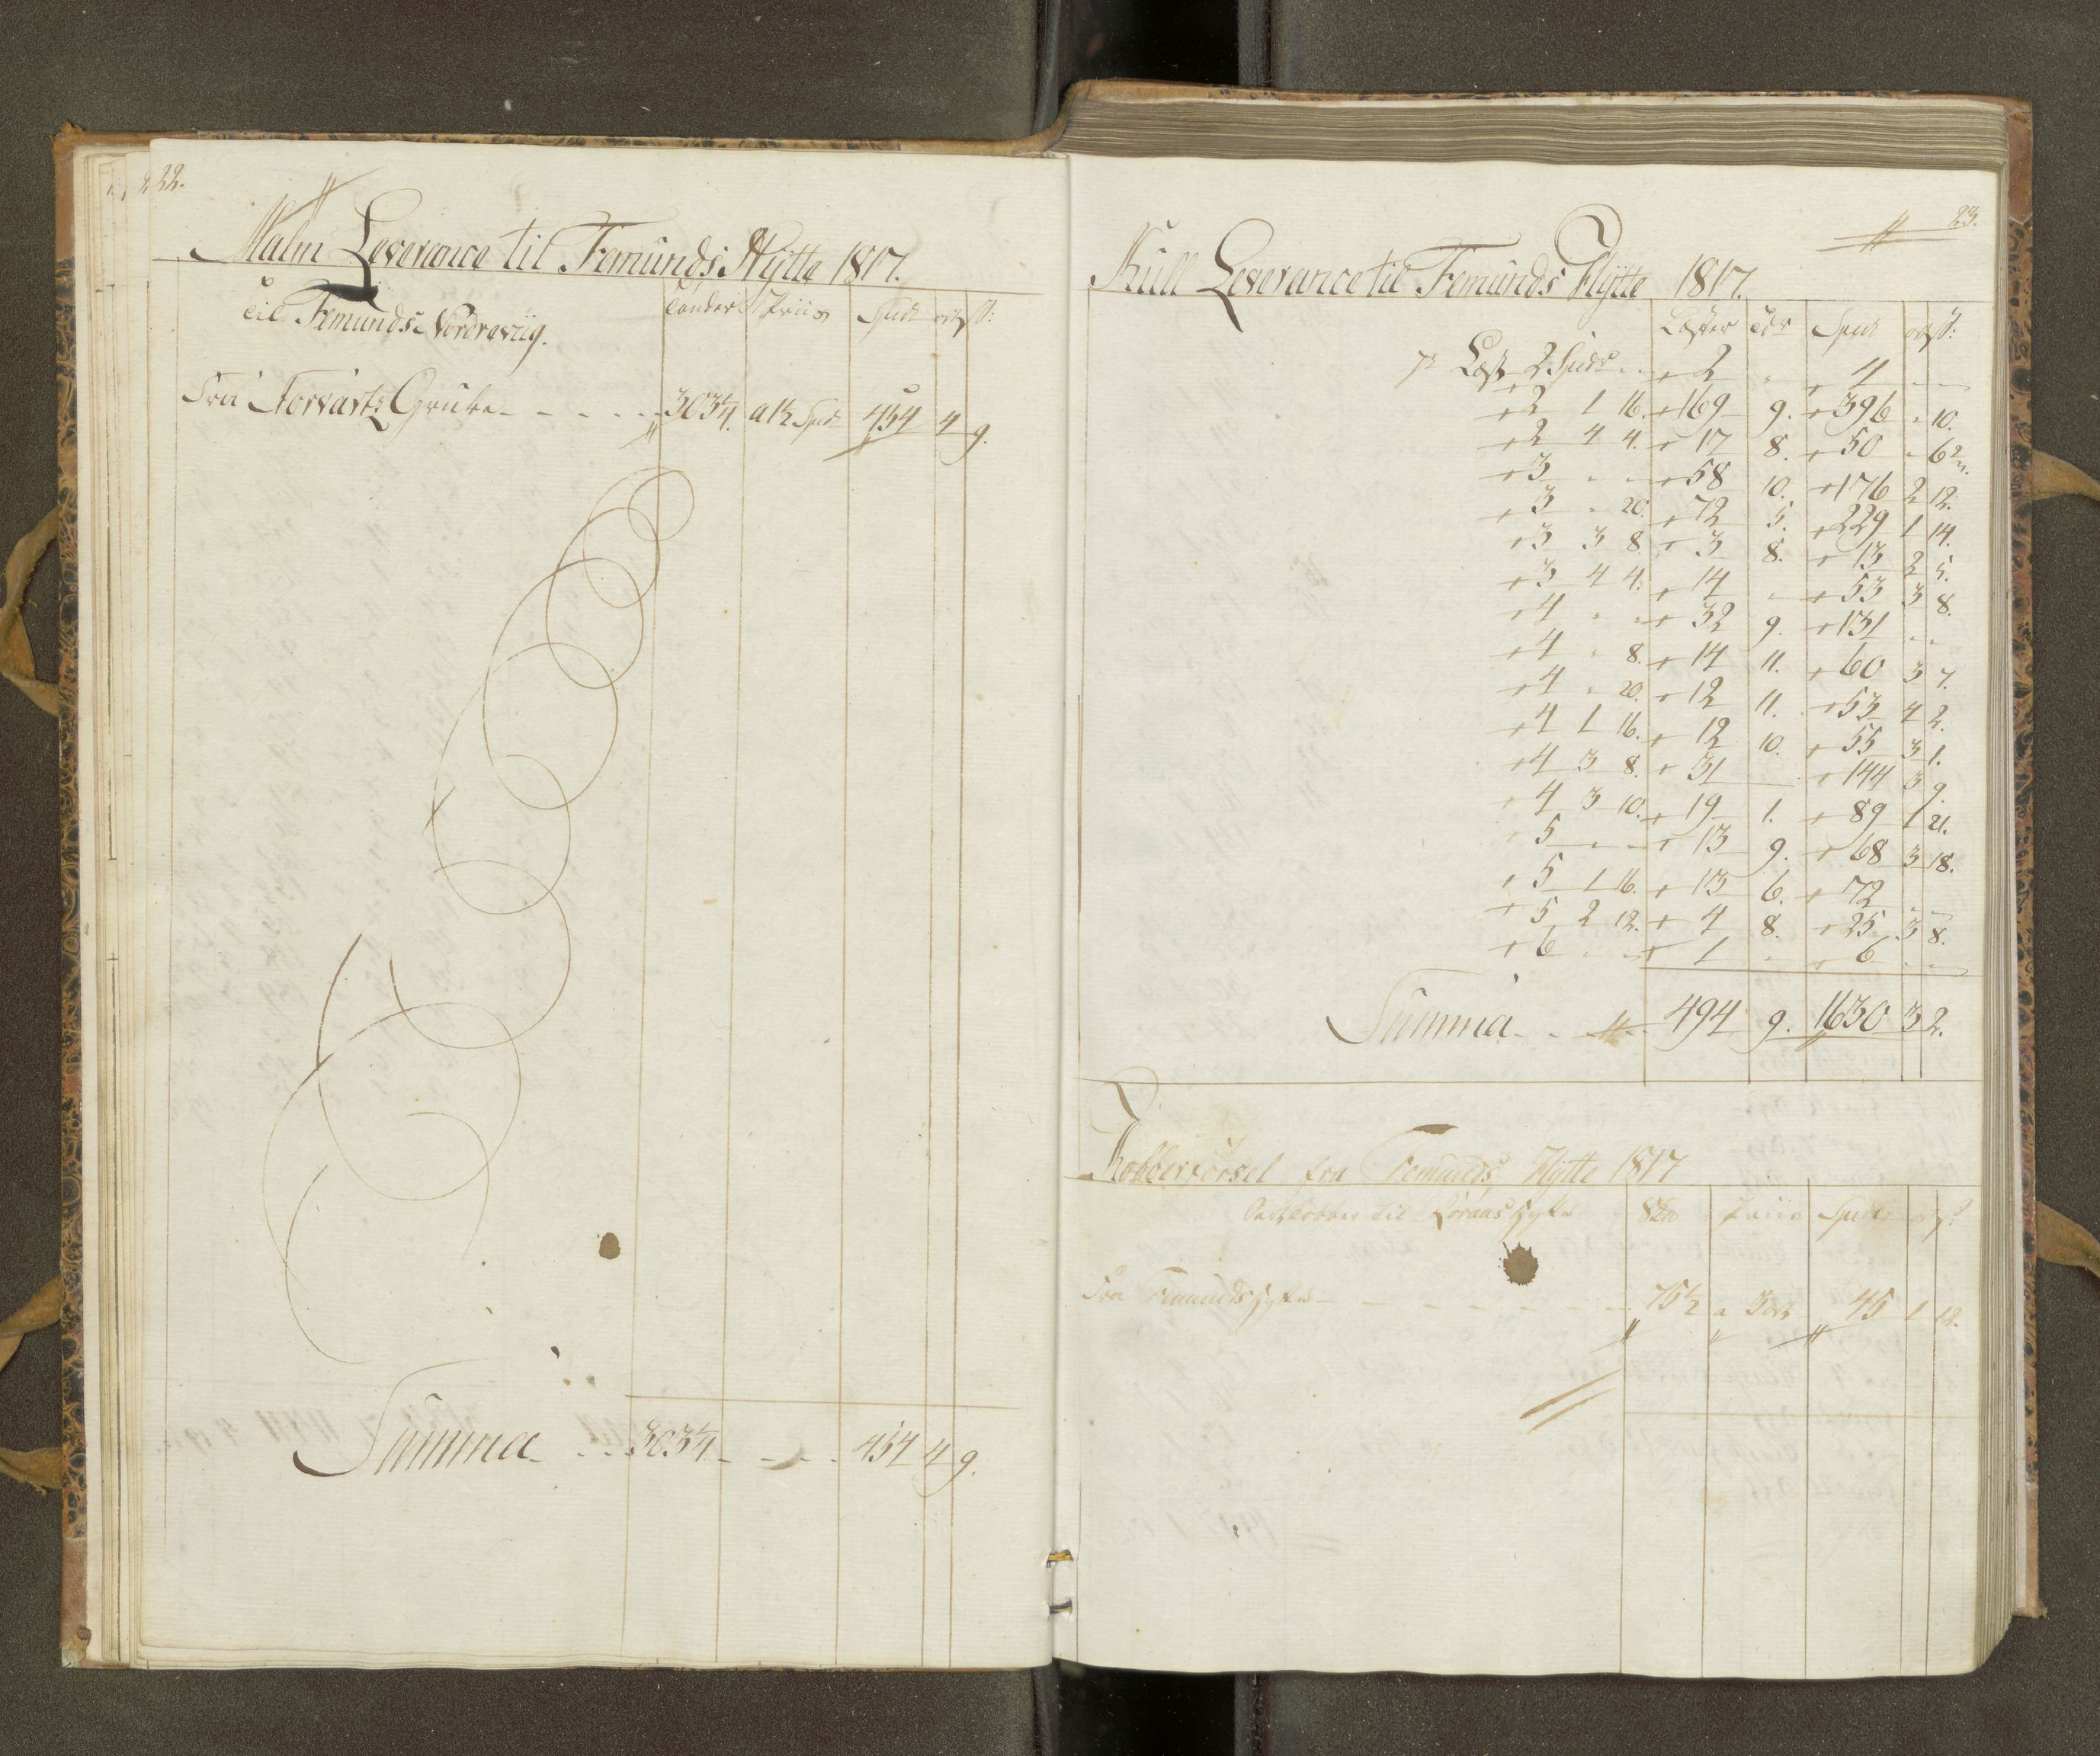 22.
Malm Leverance til Femunds Hÿtte 1817.
Til Femunds Nordreviig. Tönder Priis Spd ort ß:
Fra Forvarts Grube 303¾. a 1½ Spd 454 4 9.
Summa 303¾ 454 4 9.
23.
Kull Leverance til Femunds Hÿtte 1817.
Læster Tdr Spd ort ß:
pr Læst 2 Spdr 2 " 4
2 1 16. 169 9. 396 " 10.
2 4 4. 17 8. 50 " 6
3 " " 58 10. 176 2 12.
3 " 20. 72 5. 229 1 14.
3 3 8. 3 8. 13 2 5.
3 4 4. 14 " 53 3 8.
4 " " 32 9. 131 " "
4 " 8. 14 11. 60 3 7.
4 " 20. 12 11. 53 4 2.
4 1 16. 12 10. 55 3 1.
4 3 8. 31 144 3 9.
4 3 10. 19 1. 89 1 21.
5 " " 13 9. 68 3 18.
5 1 16. 13 6. 72
5 2 12. 4 8. 25 3 8.
6 " " 1 " 6 " "
Summa 494 9. 1630 3 2.
Kobberförsel fra Femunds Hÿtte 1817
til Röraas Hytte Priis Spd ort ß
Fra Femunds Hytte 75½ a 3 ort 45 1 12.